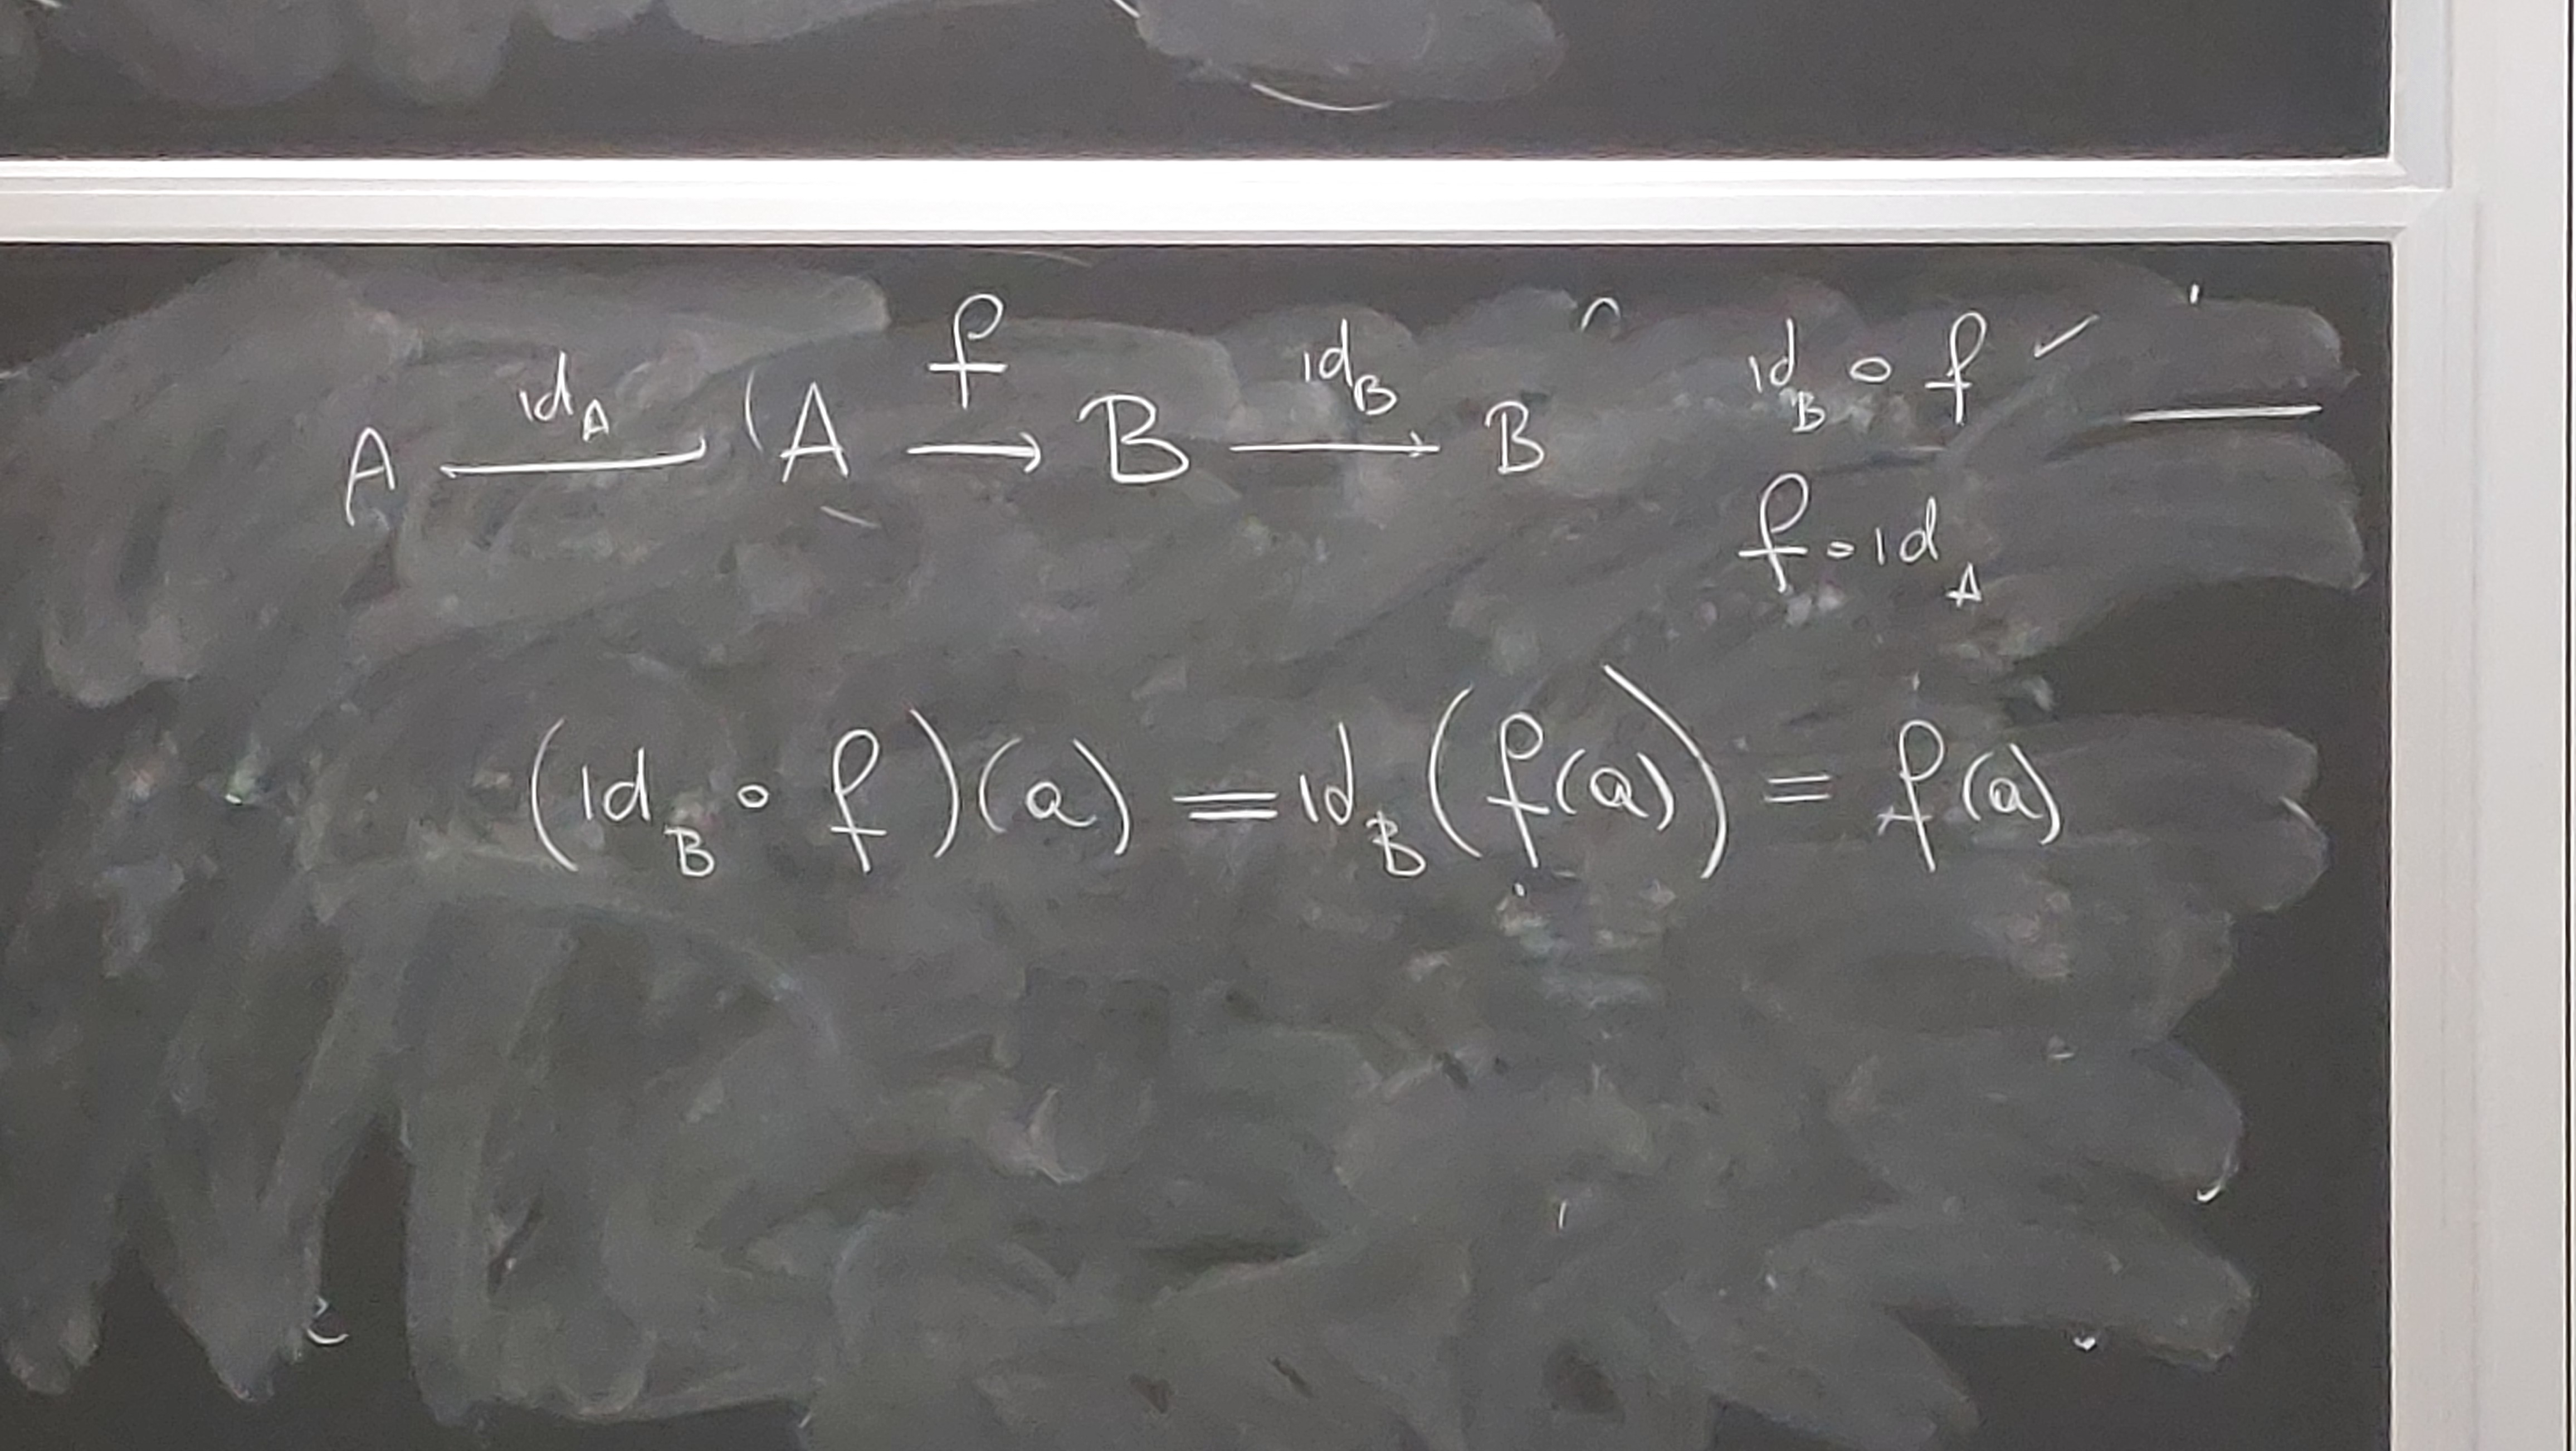 A id_A A f → B id_B → B id_B ∘ f ✓
f ∘ id_A
(id_B ∘ f)(a) = id_B(f(a)) = f(a)